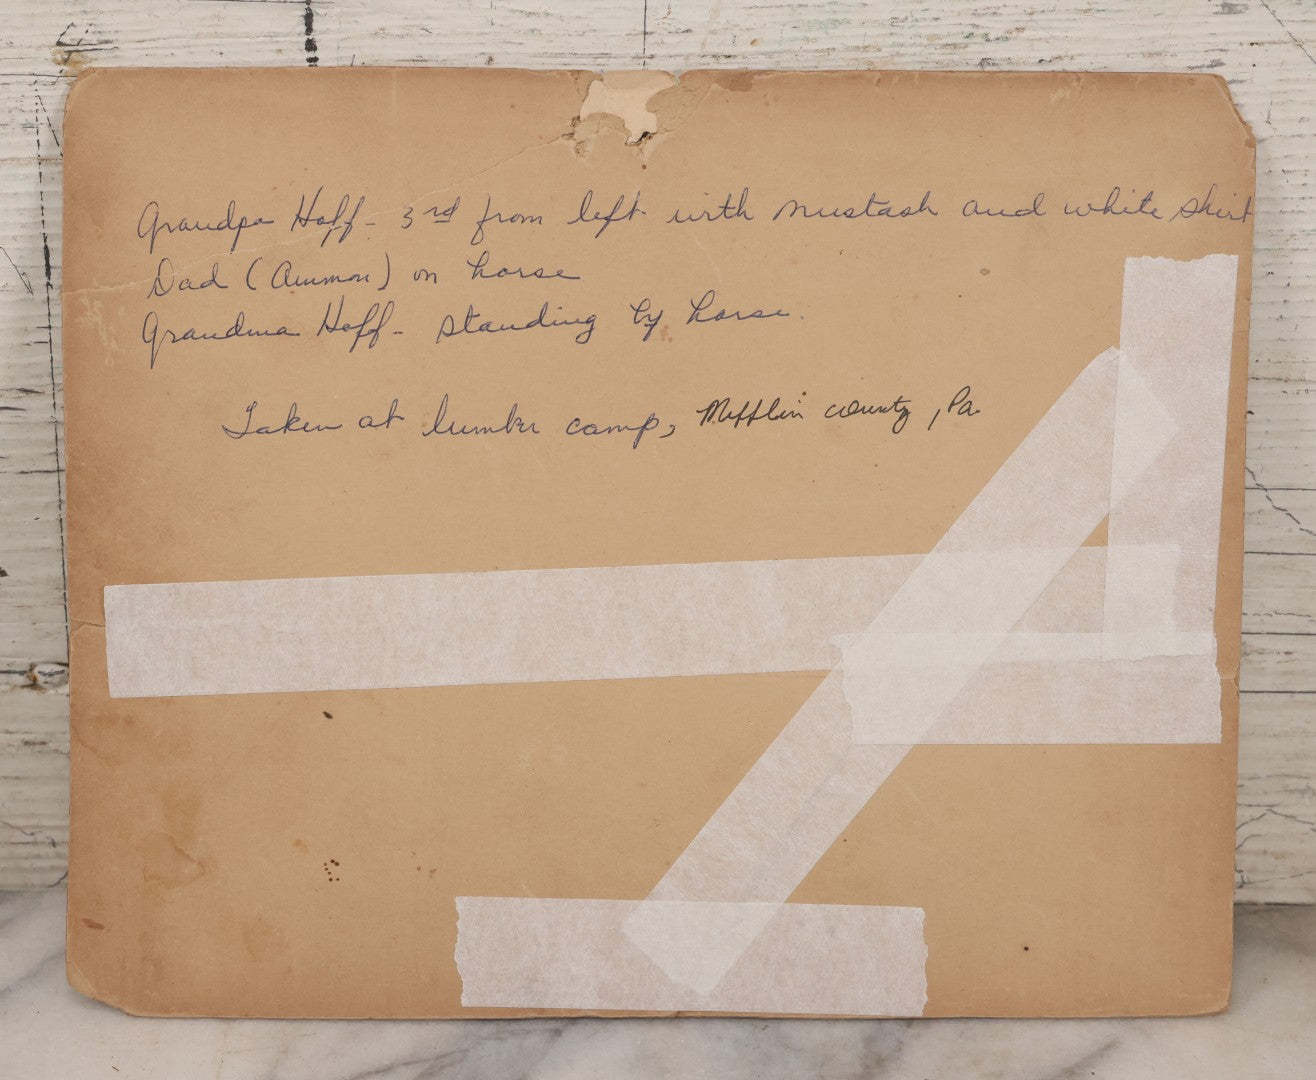 Grandpa Hoff - 3rd from left with mustash and white shirt
Dad (Ammon) on horse
Grandma Hoff - standing by horse.
Taken at lumber camp, Mifflin county, Pa.